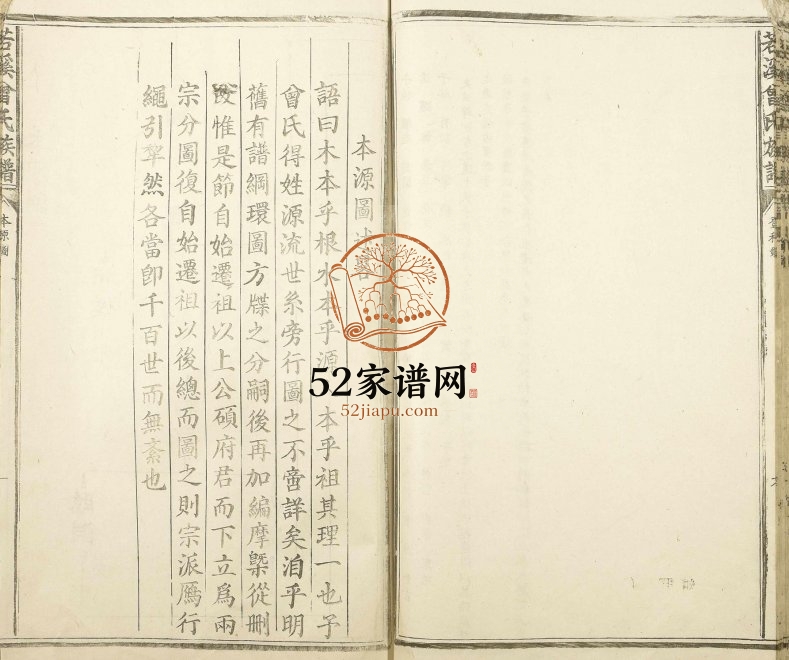 若溪曾氏族譜
本源圖
語曰木本乎根水本乎源本乎祖其理一也予
曾氏得姓源流世系旁行圖之不啻詳矣洎乎明
舊有譜綱環圖方牒之分嗣後再加編摩槩從刪
惟是節自始遷祖以上公碩府君而下立爲兩
宗分圖復自始遷祖以後總而圖之則宗派鴈行
繩引犂然各當卽千百世而無紊也
若溪曾氏族譜
本源圖
52家谱网
52jiapu.com